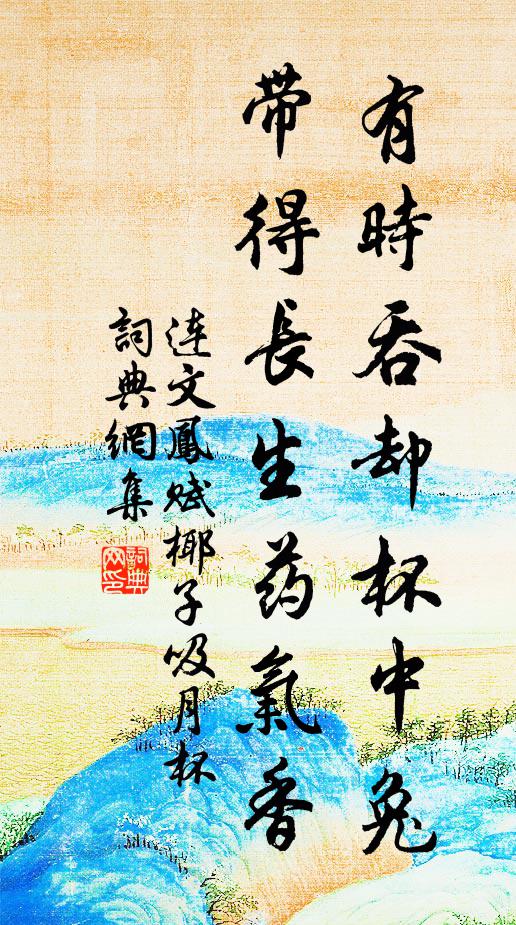 有時吞却杯中兔
带得長生药氣香
连文鳳赋椰子吸月杯
詞典網集
詞典
网印